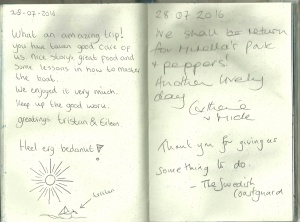 28-07-2016
What an amazing trip!
you have taken good care of
us. Nice storys great food and
some lessons in how to master
the boat.
We enjoyed is very much.
Keep up the good work.
greetings tristan & Eileen
Heel erg bedankt!
tristan
28 07 2016
We shall be return
for Minella's Pork
& peppers!
Another lovely
day
Catherine
& Mick
Thank you for giving us
something to do.
- The Swedish
Coastguard